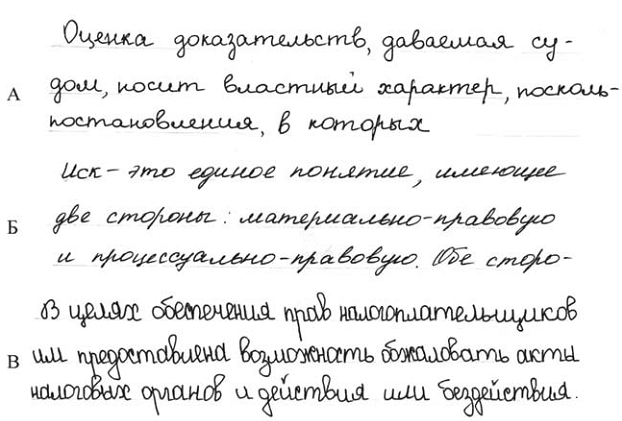 Оценка доказательств, даваемая су-
А дом, носит властный характер, посколь-
постановления, в которых
Иск – это единое понятие, имеющее
Б две стороны: материально-правовую
и процессуально-правовую. Обе сторо-
В целях обеспечения прав налогоплательщиков
В им предоставлена возможность обжаловать акты
налоговых органов и действия или бездействия.